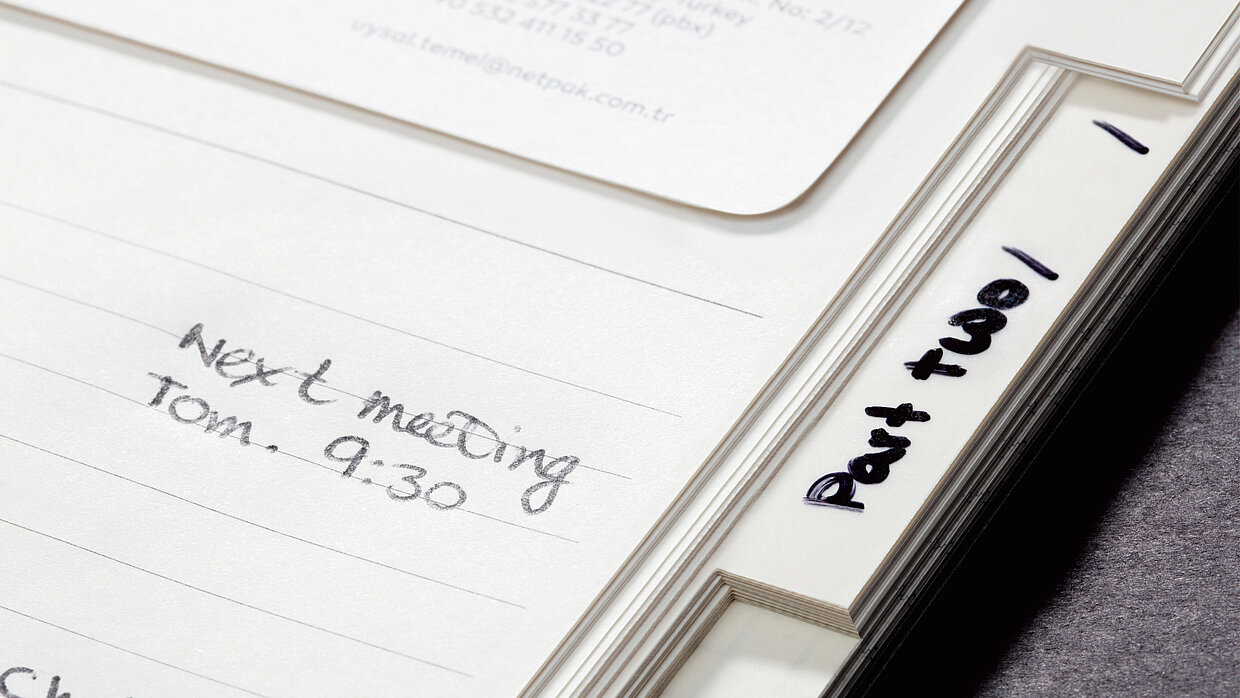 Turkey
No: 2/12
577 33 77
77 (pbx)
532 411 15 50
uysal.temel@netpak.com.tr
Next meeting
Tom. 9:30
part two/ /